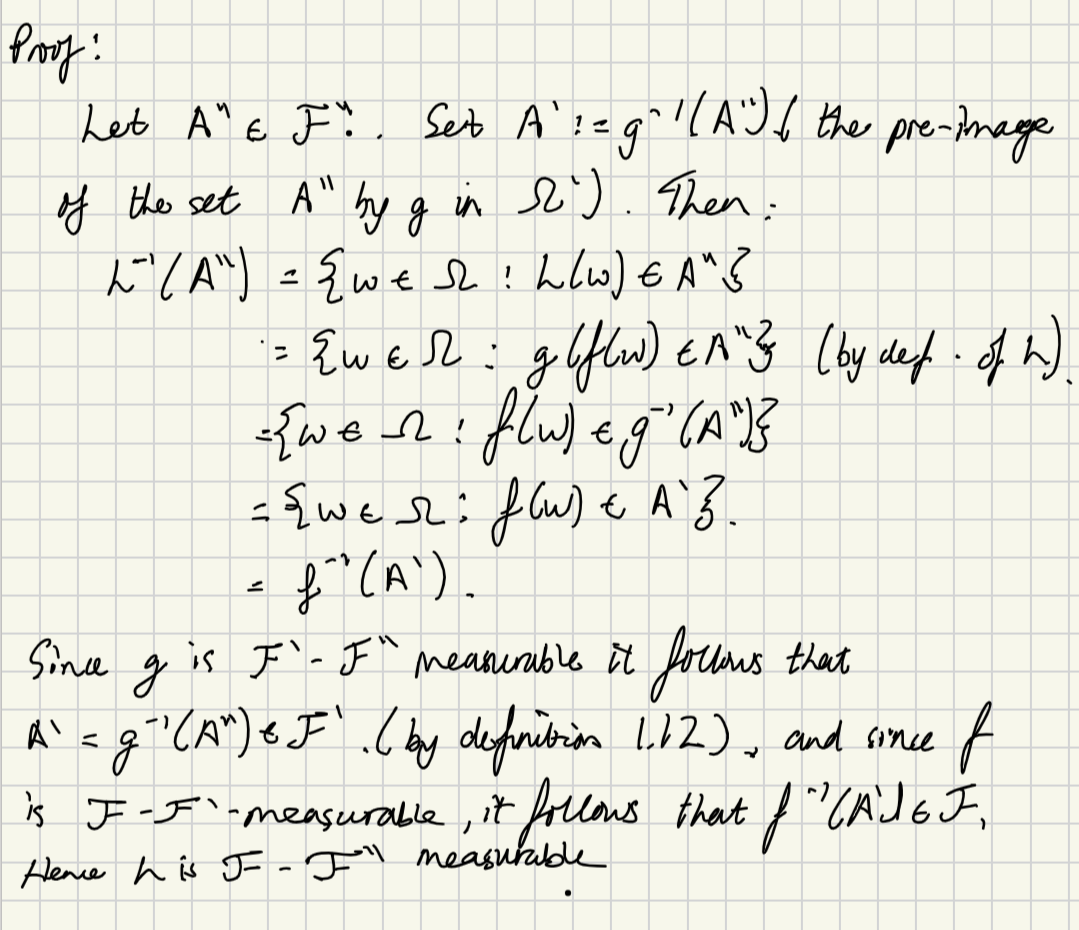 Proof:
Let A" ∈ F". Set A' := g⁻¹(A") ( the pre-image
of the set A" by g in Ω'). Then:
h⁻¹(A") = {w ∈ Ω : h(w) ∈ A"}
= {w ∈ Ω : g(f(w) ∈ A"} (by def. of h).
= {w ∈ Ω : f(w) ∈ g⁻¹(A")}
= {w ∈ Ω : f(w) ∈ A'}.
= f⁻¹(A').
Since g is F'-F" measurable it follows that
A' = g⁻¹(A") ∈ F'. (by definition 1.12), and since f
is F-F'-measurable, it follows that f⁻¹(A') ∈ F,
Hence h is F-F" measurable.